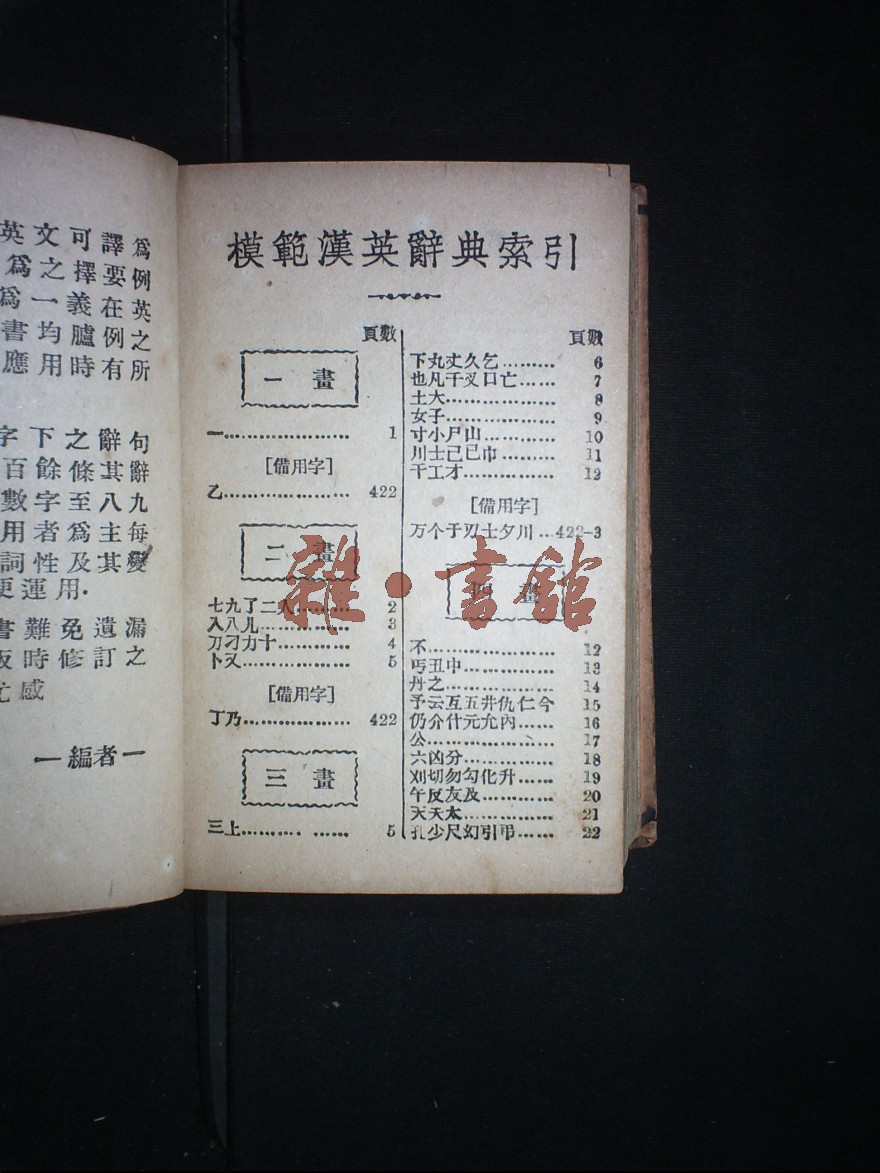 英文可譯爲
爲之擇要例
爲一義在英
書均臚例之
應用時有所
字下之辭句
百餘條其辭
數字至八九
用者爲主每
詞性及其變
更運用.
書難免遺漏
版時修訂之
尤感
—編者—
模範漢英辭典索引
頁數
一畫
一………………… 1
[備用字]
乙………………… 422
二畫
七九了二人……… 2
入八几…………… 3
刀刁力十………… 4
卜又……………… 5
[備用字]
丁乃……………… 422
三畫
三上……… …… 5
頁數
下丸丈久乞……… 6
也凡千叉口亡…… 7
土大……………… 8
女子……………… 9
寸小尸山………… 10
川士己已巾……… 11
干工才…………… 12
[備用字]
万个于刃士夕川…422-3
四畫
不………………… 12
丐丑中…………… 13
丹之……………… 14
予云互五井仇仁今 15
仍介什元允內…… 16
公………………… 17
六凶分…………… 18
刈切勿勾化升…… 19
午反友及………… 20
夭天太…………… 21
孔少尺幻引弔…… 22
雜·書館